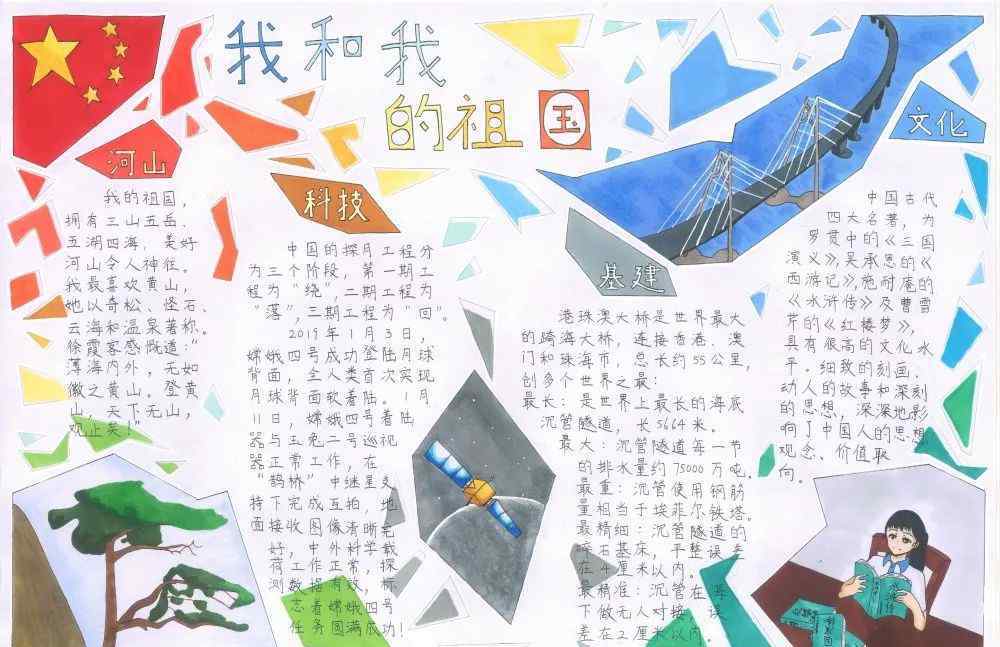 我和我
的祖国
河山
我的祖国，
拥有三山五岳、
五湖四海，美好
河山令人神往。
我最喜欢黄山，
她以奇松、怪石、
云海和温泉著称。
徐霞客感慨道：“
薄海内外，无如
徽之黄山。登黄
山，天下无山，
观止矣！”
科技
中国的探月工程分
为三个阶段，第一期工
程为“绕”，二期工程为
“落”，三期工程为“回”。
2019年1月3日，
嫦娥四号成功登陆月球
背面，全人类首次实现
月球背面软着陆。1月
11日，嫦娥四号着陆
器与玉兔二号巡视
器正常工作，在
“鹊桥”中继星支
持下完成互拍，地
面接收图像清晰完
好，中外科学载
荷工作正常，探
测数据有效，标
志着嫦娥四号
任务圆满成功！
基建
港珠澳大桥是世界最大
的跨海大桥，连接香港、澳
门和珠海市，总长约55公里，
创多个世界之最：
最长：是世界上最长的海底
沉管隧道，长5664米。
最大：沉管隧道每一节
的排水量约75000万吨。
最重：沉管使用钢筋
量相当于埃菲尔铁塔。
最精细：沉管隧道的
碎石基床，平整误差
在4厘米以内。
最精准：沉管在海
下做无人对接，误
差在2厘米以内。
文化
中国古代
四大名著，为
罗贯中的《三国
演义》，吴承恩的《
西游记》，施耐庵的
《水浒传》及曹雪
芹的《红楼梦》，
具有很高的文化水
平。细致的刻画、
动人的故事和深刻
的思想，深深地影
响了中国人的思想
观念、价值取
向。
水浒传